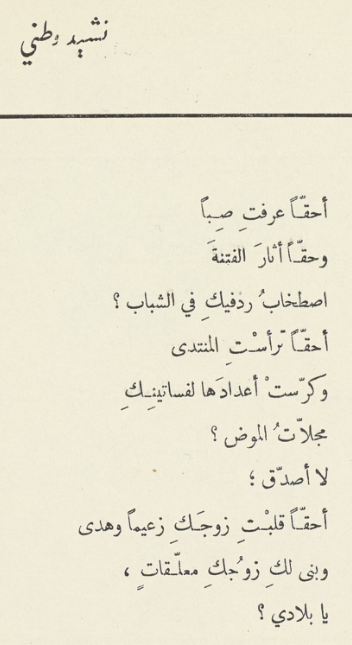 نشيد وطني
أحقّاً عرفتِ صِباً
وحقّاً أثارَ الفتنةَ
اصطخابُ ردْفيكِ في الشباب ؟
أحقّاً ترأسْتِ المنتدى
وكرّستْ أعدادَها لفساتينِكِ
مجلاّتُ الموض ؟
لا أصدّق ؛
أحقّاً قلبْتِ زوجَكِ زعيماً وهدى
وبنى لكِ زوْجُكِ معلّقاتٍ ،
يا بلادي ؟